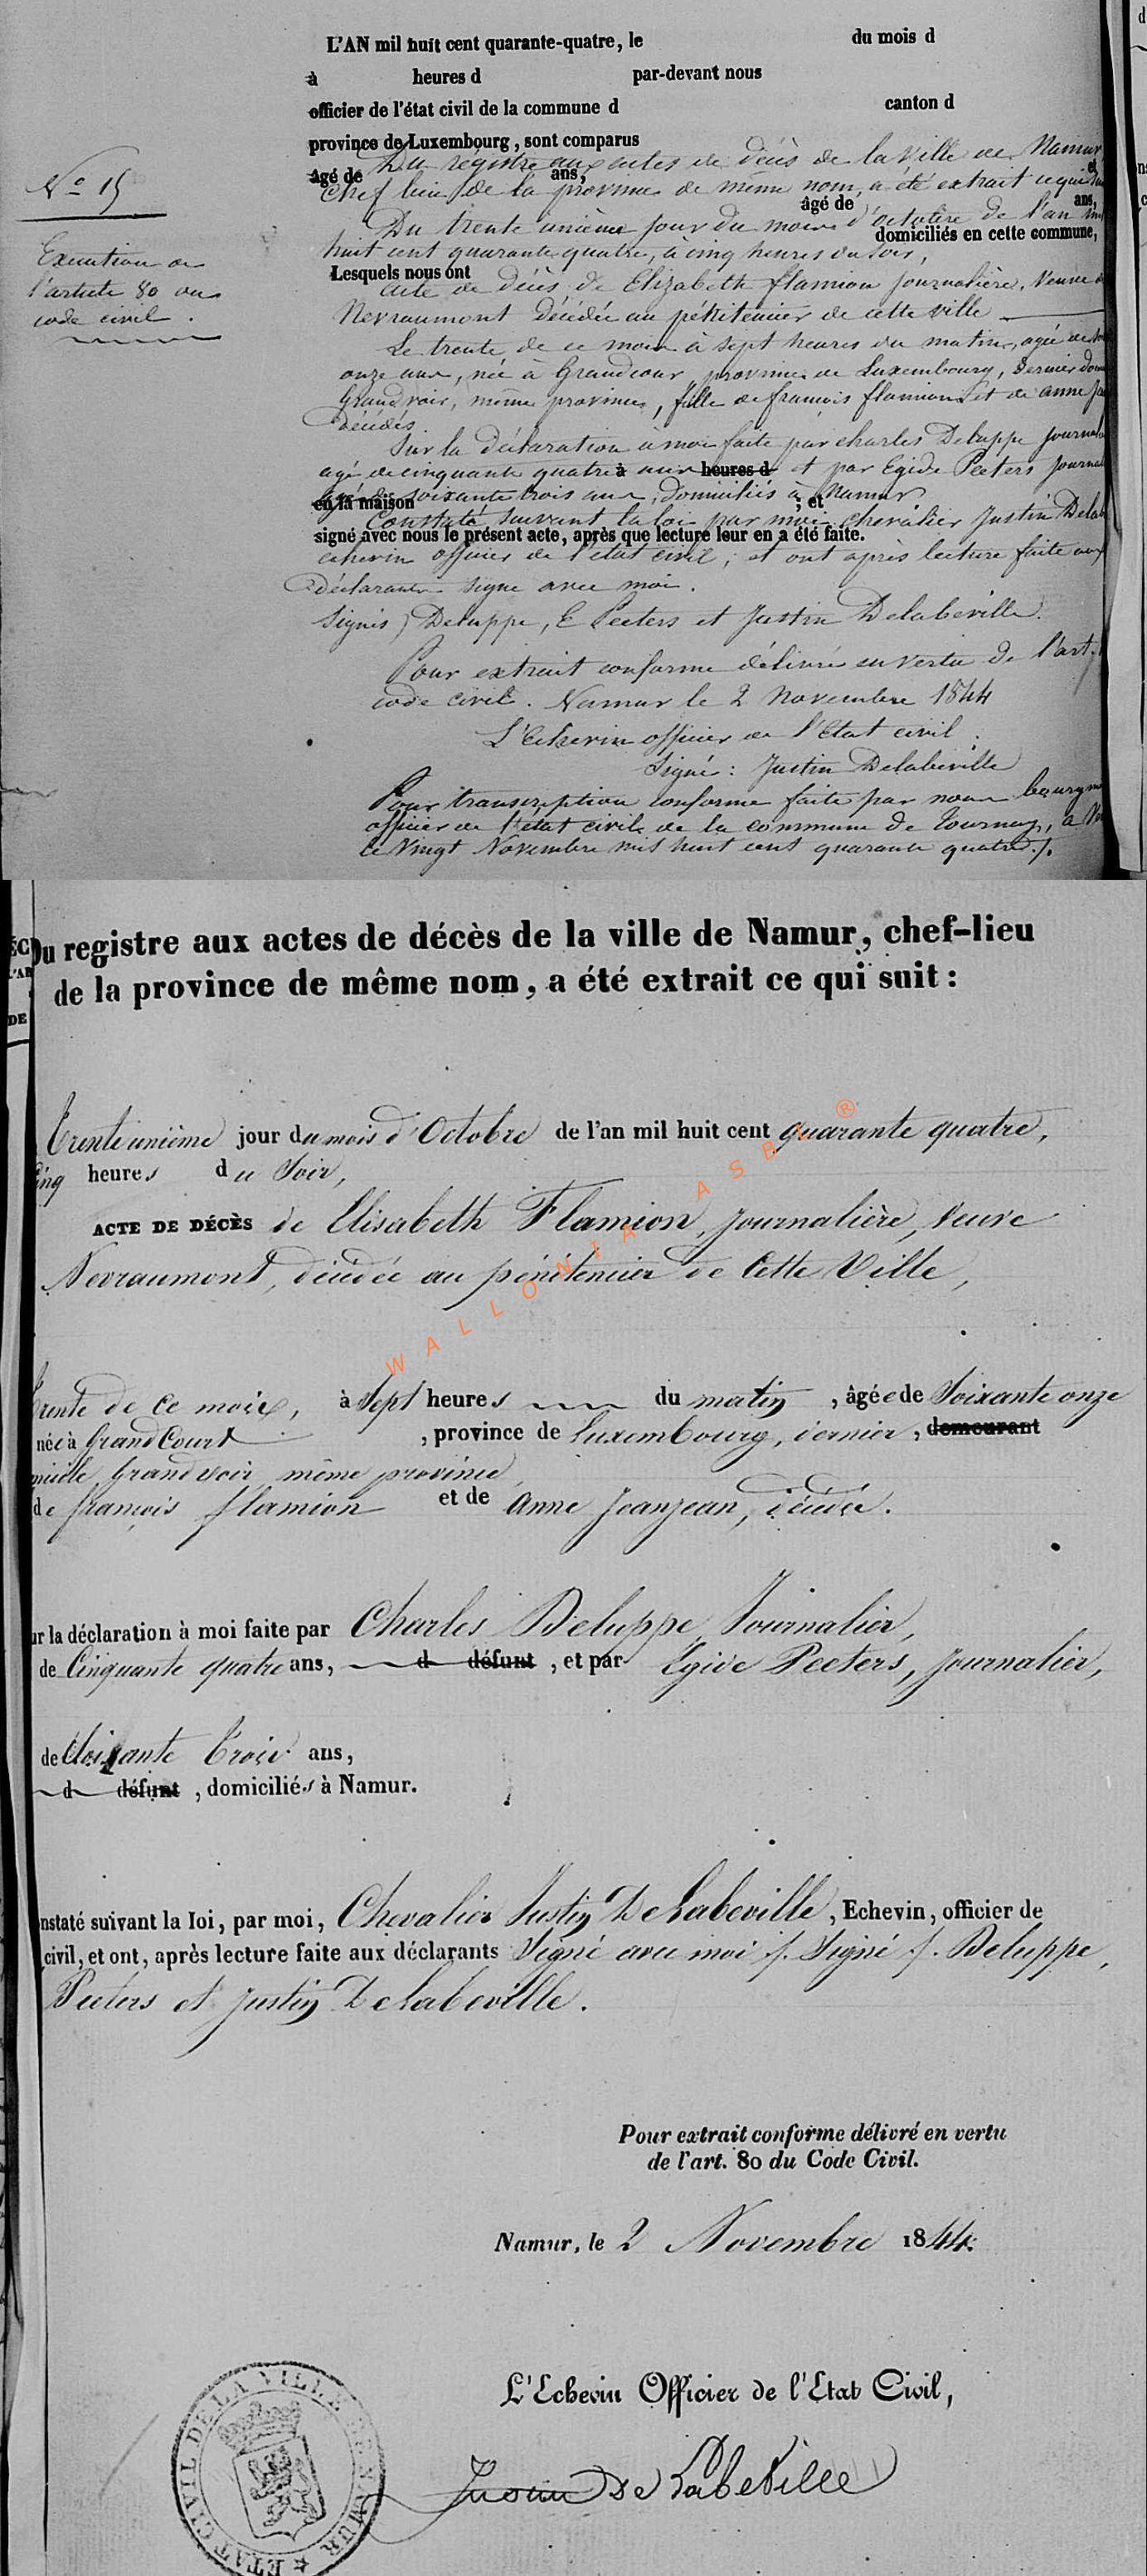 L'AN mil huit cent quarante-quatre, le du mois d
à heures d par-devant nous
officier de l'état civil de la commune d canton d
province de Luxembourg, sont comparus
Du régistre aux actes de décès de la ville de Namur
âgé de ans, et
Chef lieu de la province de même nom, a été extrait ce qui suit
âgé de ans,
Du trente unième jour du mois d'octobre de l'an mil
domiciliés en cette commune,
huit cent quarante quatre, à cinq heures du soir,
Lesquels nous ont
acte de décès de Elizabeth flamion journalière, Veuve de
Nevraumont décédée au pénitencier de cette ville
Le trente de ce mois à sept heures du matin, agée de
onze ans, née à Grandcour province de Luxembourg, dernier dom
Grandvoir, même province, fille de françois flamion et de anne
décédés.
Sur la déclaration à moi faite par charles Deluppe journa
agé de cinquante quatre à ans heures d et par Egide Peeters journal
agé de soixante trois ans, domiciliés à Namur
en la maison ; et
Constaté suivant la loi par moi chevalier Justin Delab
signé avec nous le présent acte, après que lecture leur en a été faite.
echevin officier de l'état civil, et ont après lecture faite aux
déclarants signé avec moi.
Signés) Deluppe, E Peeters et Justin Delabeville.
Pour extrait conforme délivré en vertu de l'art.
code civil. Namur le 2 Novembre 1844
L'Echevin officier de l'Etat civil.
Signé: Justin Delabeville
Pour transcription conforme faite par nous bourgm
officier de l'état civil de la commune de Tournay, à
ce Vingt Novembre mil huit cent quarante quatre ./.
No 15
Exécution de
l'article 80 du
code civil.
Du registre aux actes de décès de la ville de Namur, chef-lieu
de la province de même nom, a été extrait ce qui suit :
Trente unième jour du mois d'Octobre de l'an mil huit cent quarante quatre,
cinq heures du Soir,
ACTE DE DÉCÈS de Elisabeth Flamion, journalière, Veuve
Nevraumont, décédée au pénitencier de cette Ville,
WALLONIA ASBL ®
trente de ce mois, à Sept heures du matin, âgée de Soixante onze
née à GrandCourt, province de Luxembourg, dernier, demeurant
micile Grandvoir, même province
de françois flamion et de Anne Jeanjean, décédés.
ur la déclaration à moi faite par Charles Deluppe, Journalier,
de Cinquante quatre ans, d défunt, et par Egide Peeters, journalier,
de Soixante Trois ans,
d défunt, domiciliés à Namur.
nstaté suivant la loi, par moi, Chevalier Justin DeLabeville, Echevin, officier de
civil, et ont, après lecture faite aux déclarants Signé avec moi /. Signé /. Deluppe,
Peeters et Justin DeLabeville.
Pour extrait conforme délivré en vertu
de l'art. 80 du Code Civil.
Namur, le 2 Novembre 1844.
L'Echevin Officier de l'Etat Civil,
Justin De Labeville
ETAT CIVIL DE LA VILLE DE NAMUR